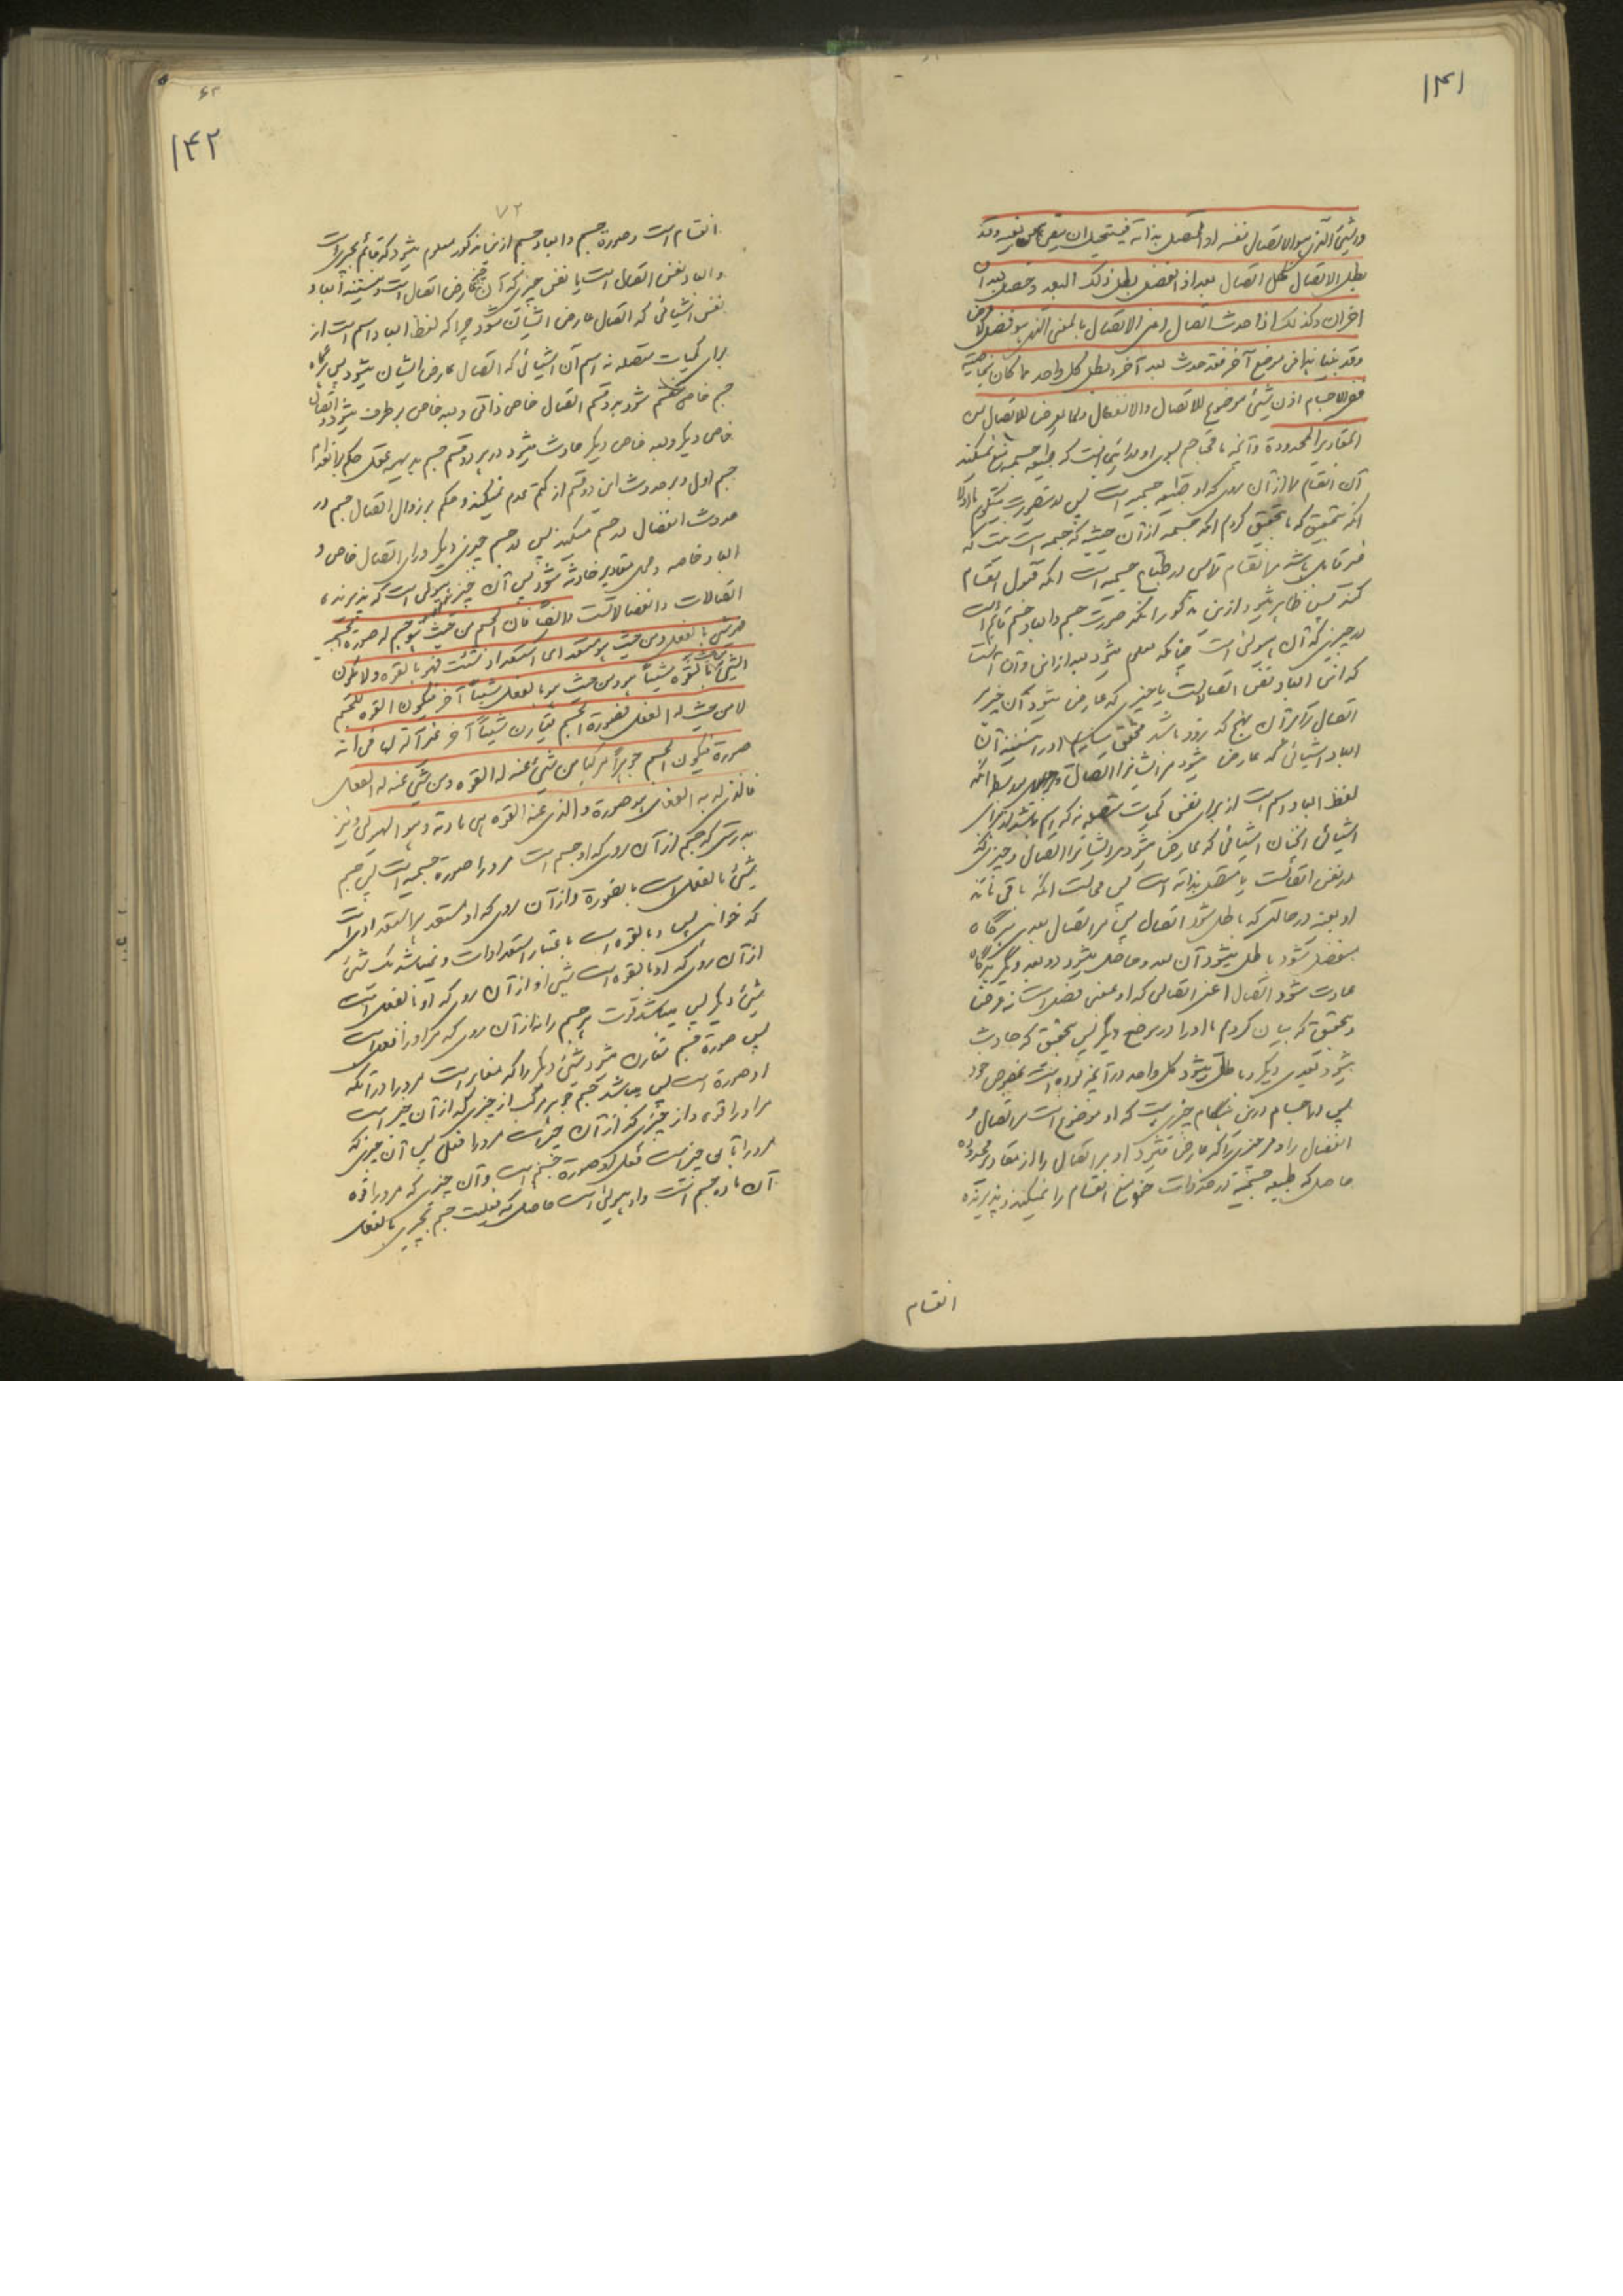 ۱۴۱
والشیئ الذی هو الاتصال نفسه او المتصل بذاته فیستحیل ان یبقی هو بعینه وقد
بطل الاتصال فکل اتصال بعد اذا انفصل بطل ذلک البعد وحصل بعدان
اخران وکذلک اذا حدث اتصال اعنی الاتصال بالمعنی الذی هو فصل لا عرض
وقد بینا هذا فی موضع آخر فقد حدث بعد آخر وبطل کل واحد مما کان بخاصیته
ففی الاجسام اذن شیئ موضوع للاتصال والانفصال ولما یعرض للاتصال من
المقادیر المحدودة
آن انقسام را از آن روی که او طبیعه جسمیه است پس
بتحقیق که ما تحقیق کردم آنکه جسمیه از آن حیثیه که جسمیه است نیست که
غیر قابل باشد مر انقسام را پس در طباع جسمیه است آنکه قبول انقسام
کند پس ظاهر میشود ازین مذکور آنکه صورت جسم وابعاد جسم قائم است
در چیزی که آن هیولی است چنانکه معلوم میشود بعد ازین وآن اینست
که این ابعاد نفس اتصالاتست یا چیزی که عارض میشود آن چیز را
اتصال
ابعاد اشیائی که عارض میشود مر ایشانرا اتصال
لفظ ابعاد اسم است از برای نفس کمیات متصله نه که اسم باشد از برای
اشیائی آنچنان اشیائی که عارض میشود مر ایشانرا اتصال وچیزی که
او نفس اتصالست یا متصل بذاته است پس محالست آنکه باقی ماند
او بعینه در حالتی که باطل شود اتصال پس هر اتصال بعدی هرگاه
منفصل شود باطل میشود آن بعد وحاصل میشود دو بعد دیگر وهرگاه
حادث شود اتصال اعنی اتصالی که او بمعنی فصل است نه عرض
وبتحقیق که بیان کردم ما او را در موضع دیگر پس بتحقیق که حادث
میشود بعدی دیگر وباطل میشود کل واحد
پس در اجسام درین هنگام چیزی هست که او موضوع است مر اتصال و
انفصال را ومر چیزی را که عارض میشود او مر اتصال را از مقادیر محدوده
حاصل که طبیعه جسمیة در حد ذات خود منع انقسام را نمیکند وپذیرنده
انقسام
۱۴۲
۷۲
انقسام است وصورة جسم وابعاد جسم ازین مذکور معلوم میشود که قائم بچیزی است
وابعاد نفس اتصال است یا نفس چیزی که آن چیز عارض اتصال است ونیستند ابعاد
نفس اشیائی که اتصال عارض ایشان شود چرا که لفظ ابعاد اسم است از
برای کمیات متصله نه اسم آن اشیائی که اتصال عارض ایشان میشود پس هرگاه
جسم خاص منقسم شود بدو قسم اتصال خاص ذاتی وبعد خاص برطرف میشود واتصال
خاص دیگر وبعد خاص دیگر حادث میشود در هر دو قسم جسم بدیهیه عقل حکم بانعدام
جسم اول وبر حدوث این دو قسم از کتم عدم نمیکند وحکم بر زوال اتصال جسم در
حدوث انفصال در جسم میکند پس در جسم چیزی دیگر ورای اتصال خاص و
ابعاد خاصه ومحل مقادیر حادثه شود پس آن چیز هیولی است که پذیرنده
اتصالات وانفصالاتست وایضا فان الجسم من حیث هو جسم له صورة الجسمیة
فهو شیئ بالفعل ومن حیث هو مستعد ای استعداد شئت فهو بالقوه ولا یکون
الشیئ من حیث هو بالقوه شیئاً هو من حیث هو بالفعل شیئاً آخر فیکون القوه للجسم
لا من حیث له الفعل فصورة الجسم یقارن شیئاً آخر غیر آله لها فی انه
صورة فیکون الجسم جوهراً مرکبا من شیئ عنه له القوه ومن شیئ عنه له الفعل
فالذی له به الفعل هو صورة والذی عنه القوه هی مادته وهو الهیولی ونیز
بدرستی که جسم از آن روی که او جسم است مر او را صورة جسمیه است پس جسم
شیئ بالفعل است بالضرورة واز آن روی که او مستعد هر استعدادیست
که خواهی پس او بالقوه است باعتبار استعدادات ونمیباشد یک شیئ
از آن روی که او بالقوه است شیئ او از آن روی که او بالفعل است
شیئ دیگر پس میباشد قوت مر جسم را نه از آن روی که مر او را فعل است
پس صورة جسم مقارن میشود شیئ دیگر را که مغایر است مر او را در آنکه
او صورة است پس میباشد جسم جوهر مرکب از چیزی که از آن چیز است
مر او را قوه واز چیزی که از آن چیز است مر او را فعل پس آن چیزی که
مر او را بآن چیز است فعل او صورة جسم است وآن چیزی که مر او را قوه
آن ماده جسم است واو هیولی است حاصل که فعلیت جسم بچیزی بالفعل